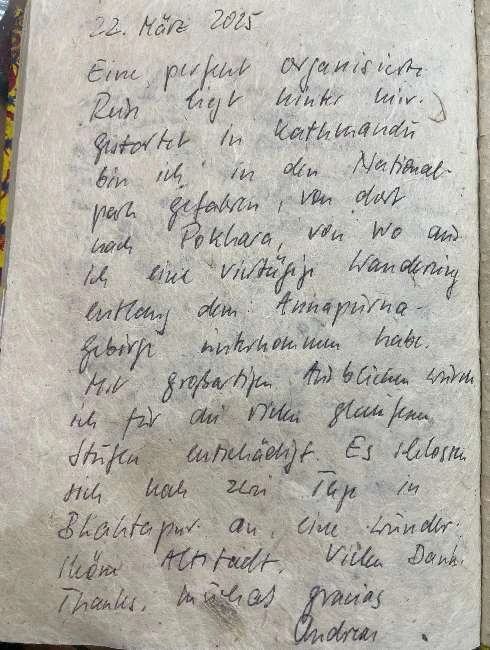 22. März 2025
Eine perfekt organisierte
Reise liegt hinter mir.
Gestartet in Kathmandu
bin ich in den National-
park gefahren, von dort
nach Pokhara, von wo aus
ich eine viertägige Wanderung
entlang dem Annapurna-
Gebirge unternommen habe.
Mit großartigen Ausblicken wurde
ich für die vielen
Stufen entschädigt. Es schlossen
sich noch zwei Tage in
Bhaktapur an, eine wunder-
schöne Altstadt. Vielen Dank.
Thanks. muchas gracias
Andreas